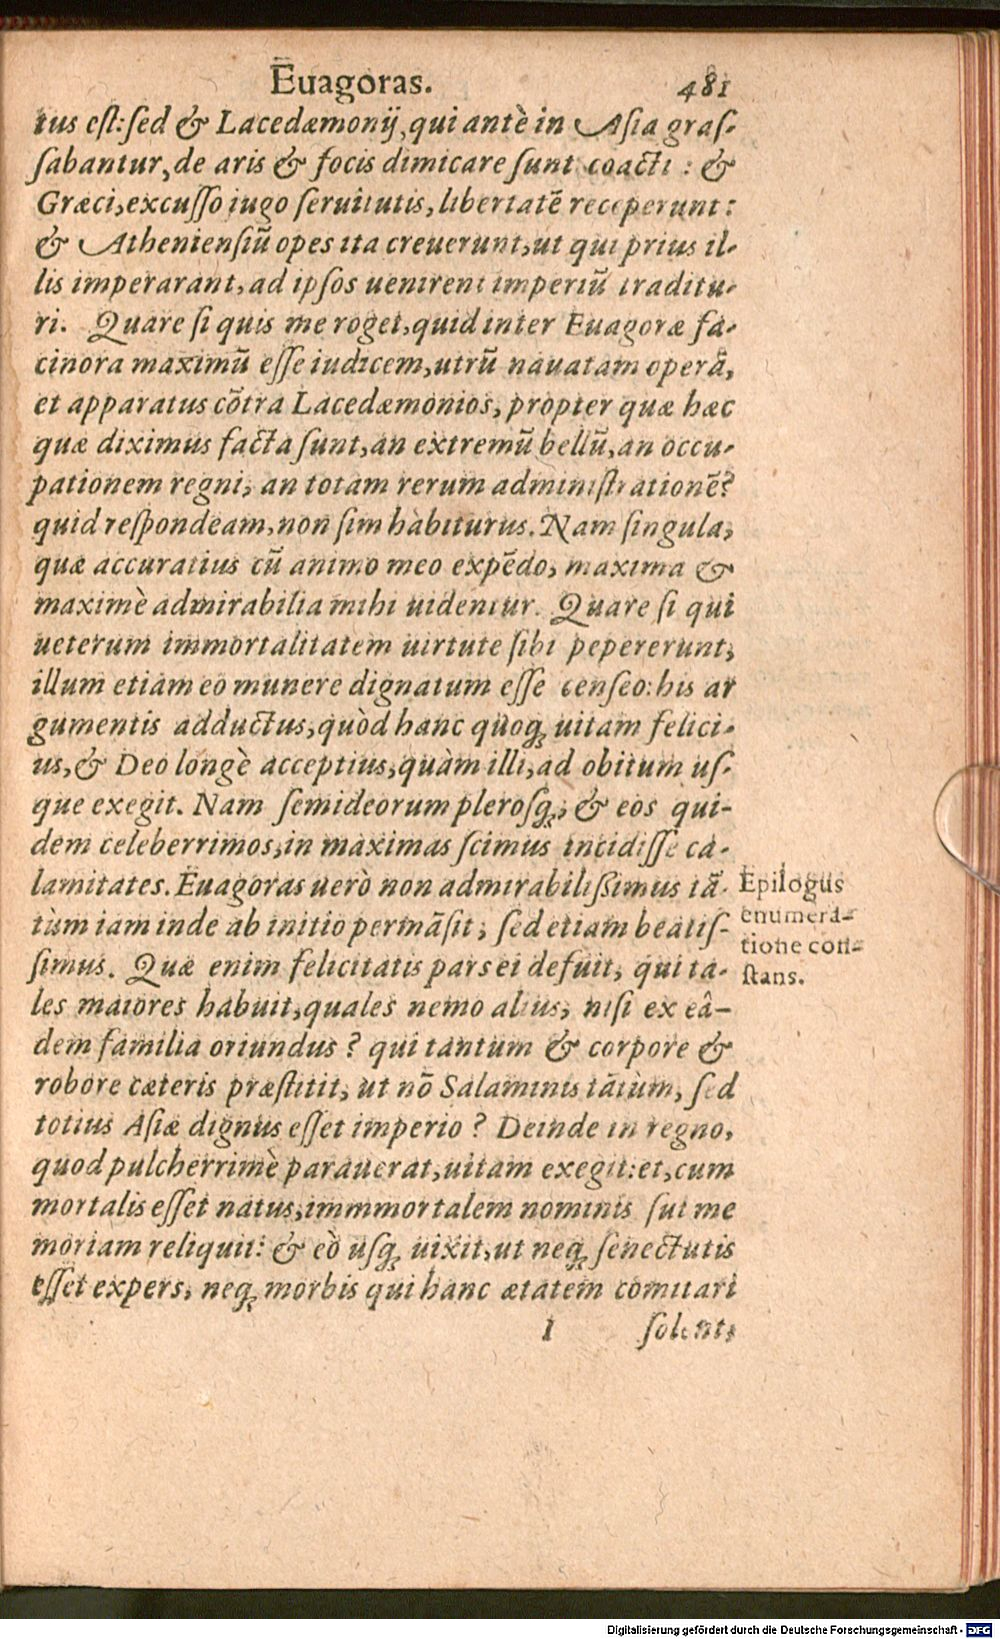 Euagoras. 481
tus eſt: ſed & Lacedæmonij, qui antè in Aſia graſ-
ſabantur, de aris & focis dimicare ſunt coacti: &
Græci, excuſſo iugo ſeruitutis, libertatē receperunt:
& Athenienſiū opes ita creuerunt, ut qui prius il-
lis imperarant, ad ipſos uenirent imperiū traditu-
ri. Quare ſi quis me roget, quid inter Euagoræ fa-
cinora maximū eſſe iudicem, utrū nauatam operã,
et apparatus cõtra Lacedæmonios, propter quæ hæc
quæ diximus facta ſunt, an extremū bellū, an occu-
pationem regni, an totam rerum adminiſtrationē?
quid reſpondeam, non ſim habiturus. Nam ſingula,
quæ accuratius cū animo meo expēdo, maxima &
maximè admirabilia mihi uidentur. Quare ſi qui
ueterum immortalitatem uirtute ſibi pepererunt,
illum etiam eo munere dignatum eſſe cenſeo: his ar
gumentis adductus, quòd hanc quoq; uitam felici-
us, & Deo longè acceptius, quàm illi, ad obitum uſ-
que exegit. Nam ſemideorum pleroſq;, & eos qui-
dem celeberrimos, in maximas ſcimus incidiſſe ca-
lamitates. Euagoras uerò non admirabiliſsimus tã-
tùm iam inde ab initio permãſit, ſed etiam beatiſ-
ſimus. Quæ enim felicitatis pars ei defuit, qui ta-
les maiores habuit, quales nemo alius, niſi ex eâ-
dem familia oriundus? qui tantum & corpore &
robore cæteris præſtitit, ut nõ Salaminis tãtùm, ſed
totius Aſiæ dignus eſſet imperio? Deinde in regno,
quod pulcherrimè parauerat, uitam exegit: et, cum
mortalis eſſet natus, immmortalem nominis ſui me
moriam reliquit: & eò uſq; uixit, ut neq; ſenectutis
eſſet expers, neq; morbis qui hanc ætatem comitari
I ſolent,
Epilogus
enumera-
tione con-
ſtans.
Digitalisierung gefördert durch die Deutsche Forschungsgemeinschaft - DFG